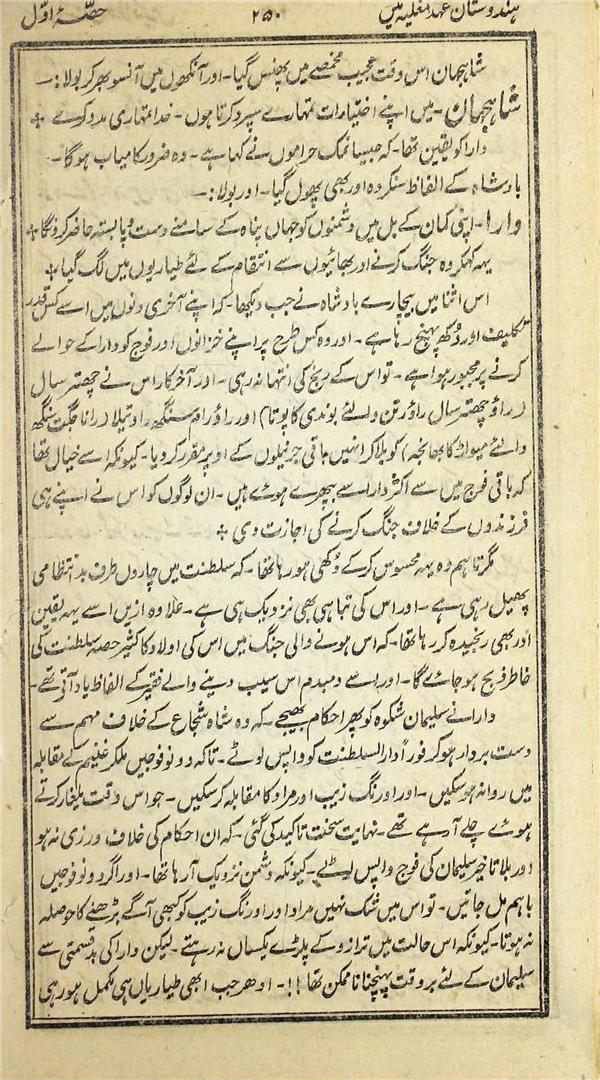 ہندوستان عہد مغلیہ میں ۲۵۰ حصّۂ اوّل
شاہجہان اس وقت عجیب مخمصے میں پھنس گیا۔ اور آنکھوں میں آنسو بھر کر بولا:۔
شاہجہان۔ میں اپنے اختیارات تمہارے سپرد کرتا ہوں۔ خدا تمہاری مدد کرے ؞
دارا کو یقین تھا۔ کہ جیسا نمک حراموں نے کہا ہے۔ وہ ضرور کامیاب ہوگا۔
بادشاہ کے الفاظ سنکر وہ اور بھی پھول گیا۔ اور بولا:۔
دارا۔ اپنی کمان کے بل میں دشمنوں کو جہاں پناہ کے سامنے دست و پا بستہ حاضر کرونگا ؞
یہہ کہکر وہ جنگ کرنے اور بھائیوں سے انتقام کے لئے طیاریوں میں لگ گیا ؞
اس اثنا میں بیچارے بادشاہ نے جب دیکھا۔ کہ اپنے آخری دنوں میں اسے کس قدر
تکلیف اور دُکھ پہنچ رہا ہے۔ اور وہ کس طرح پر اپنے خزانوں اور فوج کو دارا کے حوالے
کرنے پر مجبور ہوا ہے۔ تو اس کے رنج کی انتہا نہ رہی۔ اور آخرکار اس نے چھتر سال
(راؤ چھتر سال راؤ رتن والئے بوندی کا پوتا) اور راؤ رام سنگھ راوتیلا (رانا جگت سنگھ
والئے میواڑ کا بھانجہ) کو بلا کر انہیں باقی جرنیلوں کے اوپر مقرر کر دیا۔ کیونکہ اسے خیال تھا
کہ باقی فوج میں سے اکثر دارا سے بپھرے ہوئے ہیں۔ ان لوگوں کو اس نے اپنے ہی
فرزندوں کے خلاف جنگ کرنے کی اجازت دی ؞
مگر تاہم وہ یہہ محسوس کر کے دُکھی ہو رہا تھا۔ کہ سلطنت میں چاروں طرف بد انتظامی
پھیل رہی ہے۔ اور اس کی تباہی بھی نزدیک ہی ہے۔ علاوہ ازیں اسے یہہ یقین
اور بھی رنجیدہ کر رہا تھا۔ کہ اس ہونے والی جنگ میں اس کی اولاد کا کثیر حصہ سلطنت کی
خاطر ذبح ہو جائے گا۔ اور اسے دمبدم اس سیب دینے والے فقیر کے الفاظ یاد آتے تھے۔
دارا نے سلیمان شکوہ کو پھر احکام بھیجے۔ کہ وہ شاہ شجاع کے خلاف مہم سے
دست بردار ہو کر فوراً دارالسلطنت کو واپس لوٹے۔ تاکہ دونو فوجیں ملکر غنیم کے مقابلہ
میں روانہ ہو سکیں۔ اور اورنگ زیب اور مراد کا مقابلہ کر سکیں۔ جو اس وقت یلغار کرتے
ہوئے چلے آ رہے تھے۔ نہایت سخت تاکید کی گئی۔ کہ ان احکام کی خلاف ورزی نہ ہو
اور بلا تاخیر سلیمان کی فوج واپس لوٹے۔ کیونکہ دشمن نزدیک آ رہا تھا۔ اور اگر دونو فوجیں
باہم مل جاتیں۔ تو اس میں شک نہیں مراد اور اورنگ زیب کو کبھی آگے بڑھنے کا حوصلہ
نہ ہوتا۔ کیونکہ اس حالت میں ترازو کے پلڑے یکساں نہ رہتے۔ لیکن دارا کی بدقسمتی سے
سلیمان کے لئے بروقت پہنچنا ناممکن تھا!!۔ ادھر جب ابھی طیاریاں ہی مکمل ہو رہی